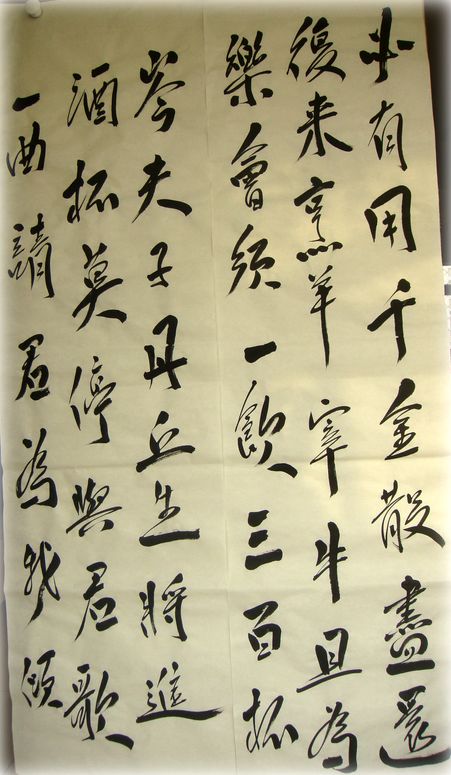 必有用千金散盡還
復来烹羊宰牛且為
樂會須一飲三百杯
岑夫子丹丘生將進
酒杯莫停與君歌
一曲請君為我傾